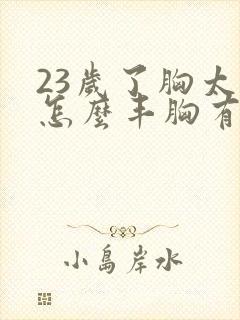 23歲了胸太
怎麼丰胸有
小島岸水